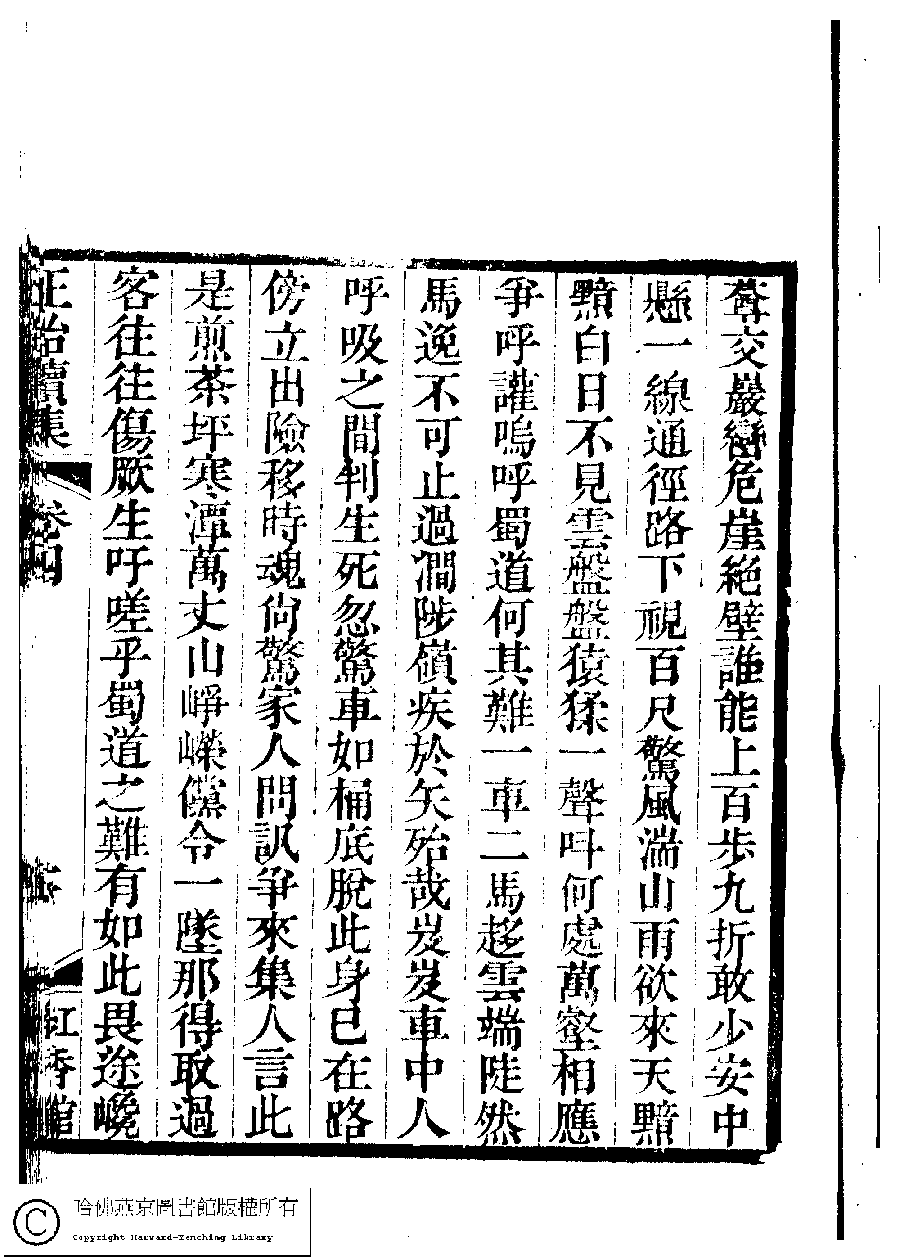 聳交巖巒危崖絶壁誰能上百步九折敢少安中
懸一線通徑路下視百尺驚風湍山雨欲來天黯
黯白日不見雲盤盤猿猱一聲呌何處萬壑相應
爭呼讙嗚呼蜀道何其難一車二馬趂雲端陡然
馬逸不可止過澗陟嶺疾於矢殆哉岌岌車中人
呼吸之間判生死忽驚車如桶底脫此身已在路
傍立出險移時魂尙驚家人問訊爭來集人言此
是煎茶坪寒潭萬丈山崢嶸儻令一墜那得取過
客往往傷厥生吁嗟乎蜀道之難有如此畏途巉
正始續集 卷四 紅香館
哈佛燕京圖書館版權所有
Copyright Harvard-Yenching Library